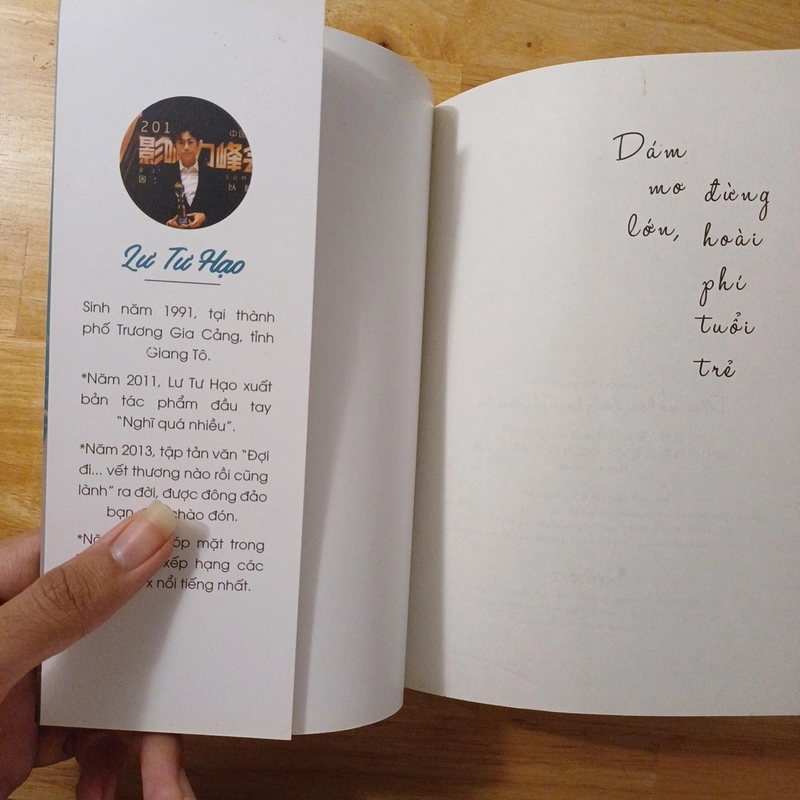 201
影响力峰会
Lư Tư Hạo
Sinh năm 1991, tại thành
phố Trương Gia Cảng, tỉnh
Giang Tô.
*Năm 2011, Lư Tư Hạo xuất
bản tác phẩm đầu tay
“Nghĩ quá nhiều”.
*Năm 2013, tập tản văn “Đợi
đi... vết thương nào rồi cũng
lành” ra đời, được đông đảo
bạn chào đón.
mặt trong
xếp hạng các
nổi tiếng nhất.
Dám
mơ
lớn,
đừng
hoài
phí
tuổi
trẻ